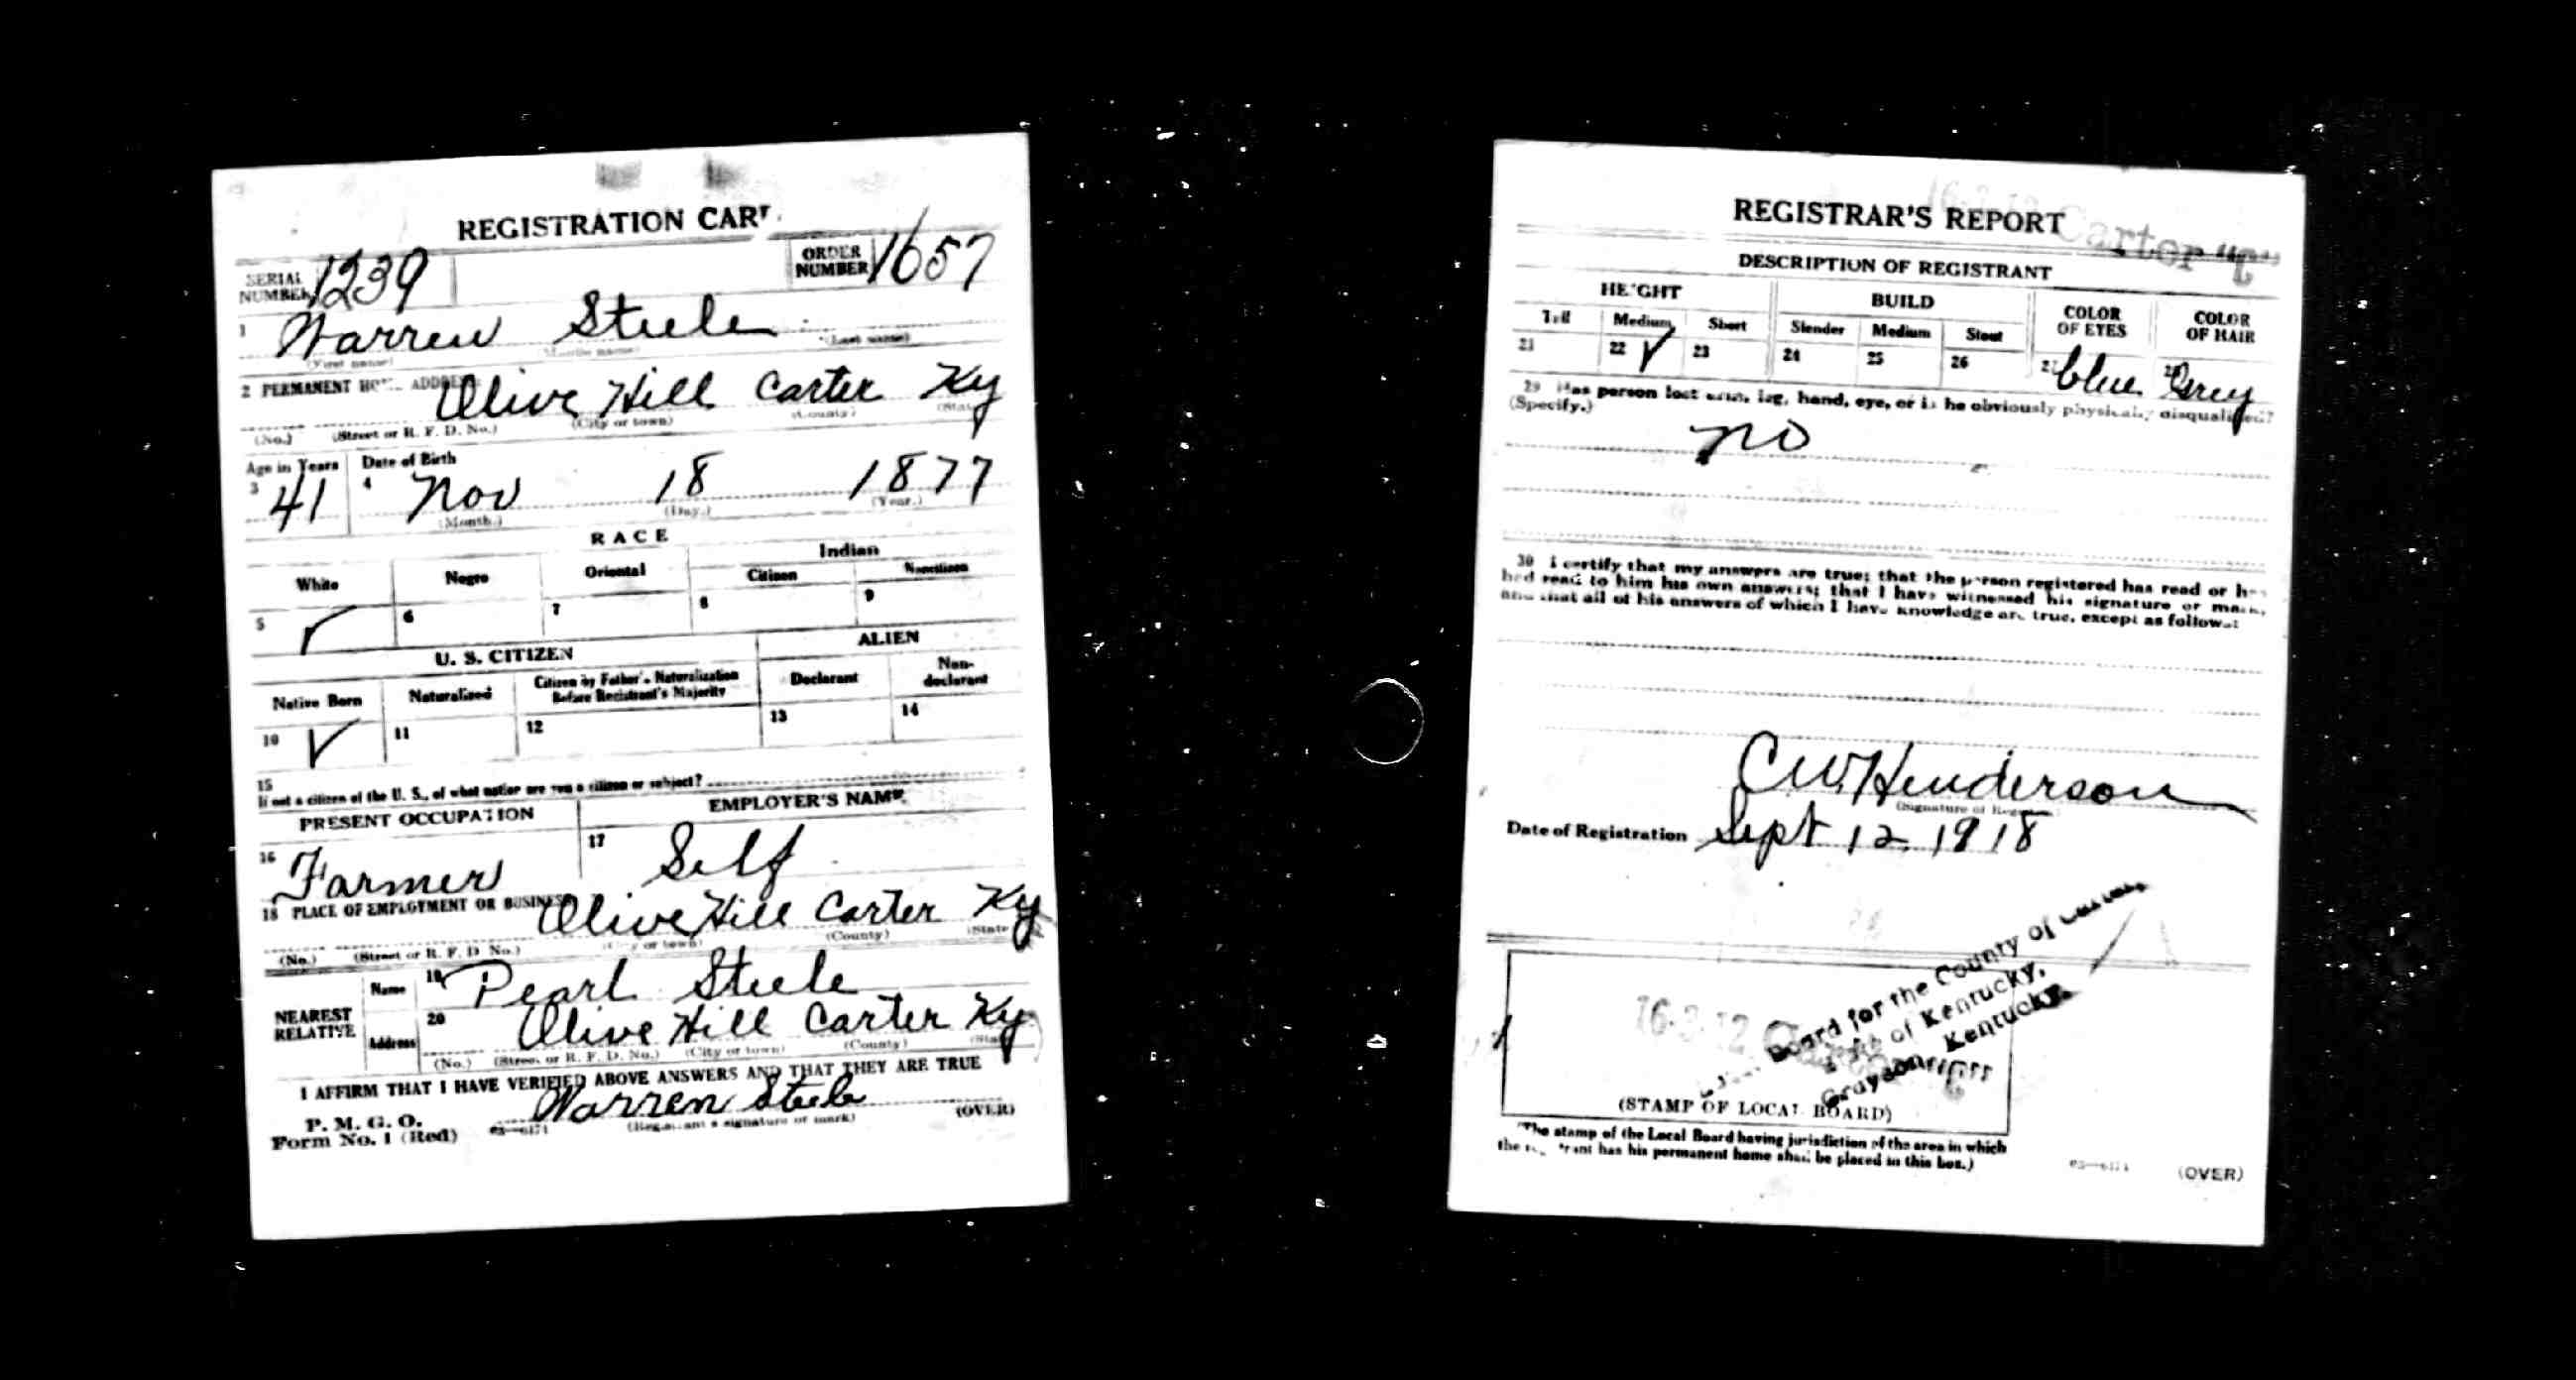 REGISTRATION CAR
SERIAL NUMBER 1239
ORDER NUMBER 1657
1 Warren Steele
(First name) (Middle name) (Last name)
2 PERMANENT HOME ADDRESS: Olive Hill Carter Ky
(No.) (Street or R. F. D. No.) (City or town) (County) (State)
Age in Years Date of Birth
3 41 4 Nov 18 1877
(Month.) (Day.) (Year.)
RACE
White Negro Oriental Indian
Citizen Noncitizen
5 ✓ 6 7 8 9
U. S. CITIZEN ALIEN
Native Born Naturalized Citizen by Father's Naturalization Before Registrant's Majority Declarant Non-declarant
10 ✓ 11 12 13 14
15
If not a citizen of the U. S., of what nation are you a citizen or subject?
PRESENT OCCUPATION EMPLOYER'S NAME
16 Farmer 17 Self
18 PLACE OF EMPLOYMENT OR BUSINESS: Olive Hill Carter Ky
(No.) (Street or R. F. D. No.) (City or town) (County) (State)
NEAREST RELATIVE
Name 19 Pearl Steele
Address 20 Olive Hill Carter Ky
(No.) (Street or R. F. D. No.) (City or town) (County) (State)
I AFFIRM THAT I HAVE VERIFIED ABOVE ANSWERS AND THAT THEY ARE TRUE
P. M. G. O.
Form No. 1 (Red)
Warren Steele
(Registrant's signature or mark)
(OVER)
REGISTRAR'S REPORT
16-3-12 Carter "C"
DESCRIPTION OF REGISTRANT
HEIGHT BUILD COLOR OF EYES COLOR OF HAIR
Tall Medium Short Slender Medium Stout
21 22 ✓ 23 24 25 26 27 blue 28 Grey
29 Has person lost arm, leg, hand, eye, or is he obviously physically disqualified?
(Specify.)
no
30 I certify that my answers are true; that the person registered has read or has
had read to him his own answers; that I have witnessed his signature or mark,
and that all of his answers of which I have knowledge are true, except as follows:
C W Henderson
(Signature of Registrar)
Date of Registration Sept 12, 1918
Board for the County of Carter,
State of Kentucky,
Grayson, Kentucky.
16-3-12 Carter "C"
(STAMP OF LOCAL BOARD)
(The stamp of the Local Board having jurisdiction of the area in which
the registrant has his permanent home shall be placed in this box.)
(OVER)